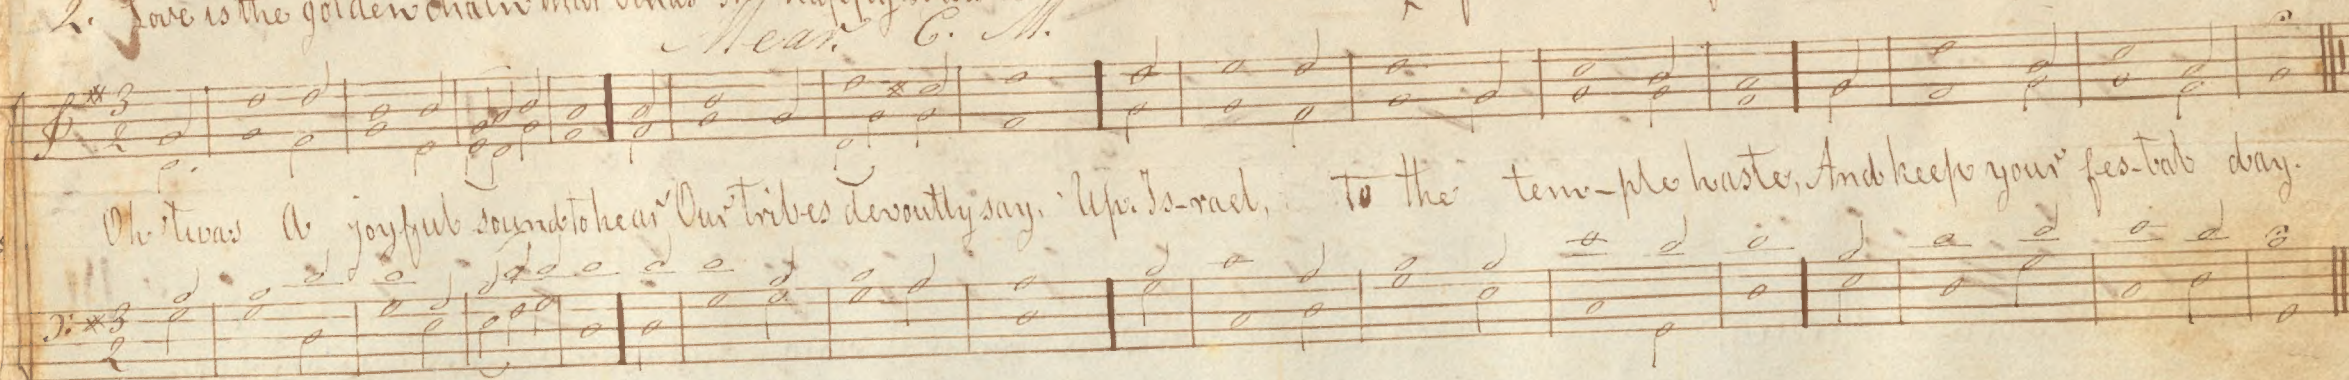 2. Love is the golden chain that binds
Mear. C. M.
3
2
Oh 'twas a joyful sound to hear Our tribes devoutly say. Up. Is-rael, to the tem-ple haste, And keep your fes-tal day.
3
2